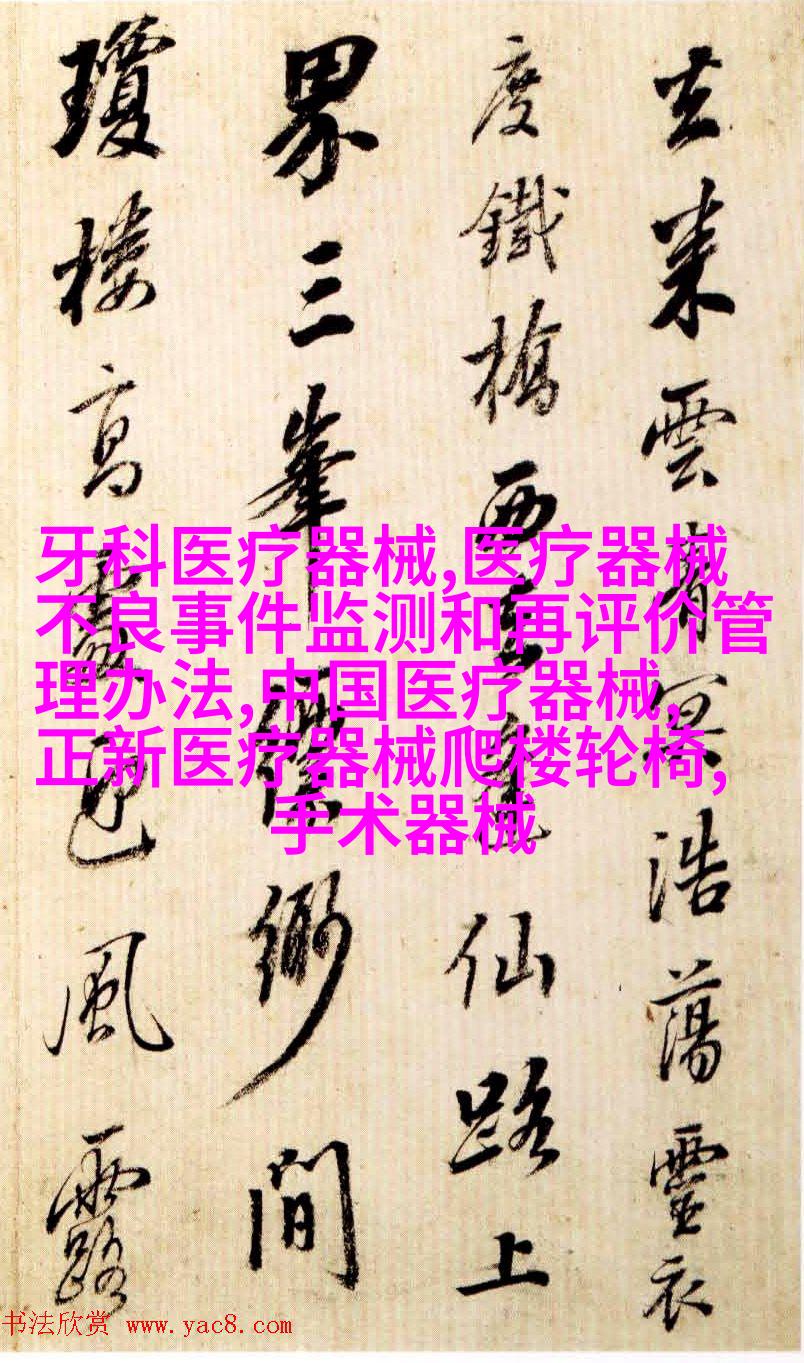 去来雲冥浩蕩靈衣
度鐵橋西仙路上
界三峯縹緲間
瓊樓高風露
牙科医疗器械,医疗器械
不良事件监测和再评价管
理办法,中国医疗器械,
正新医疗器械爬楼轮椅,
手术器械
书法欣赏 www.yac8.com